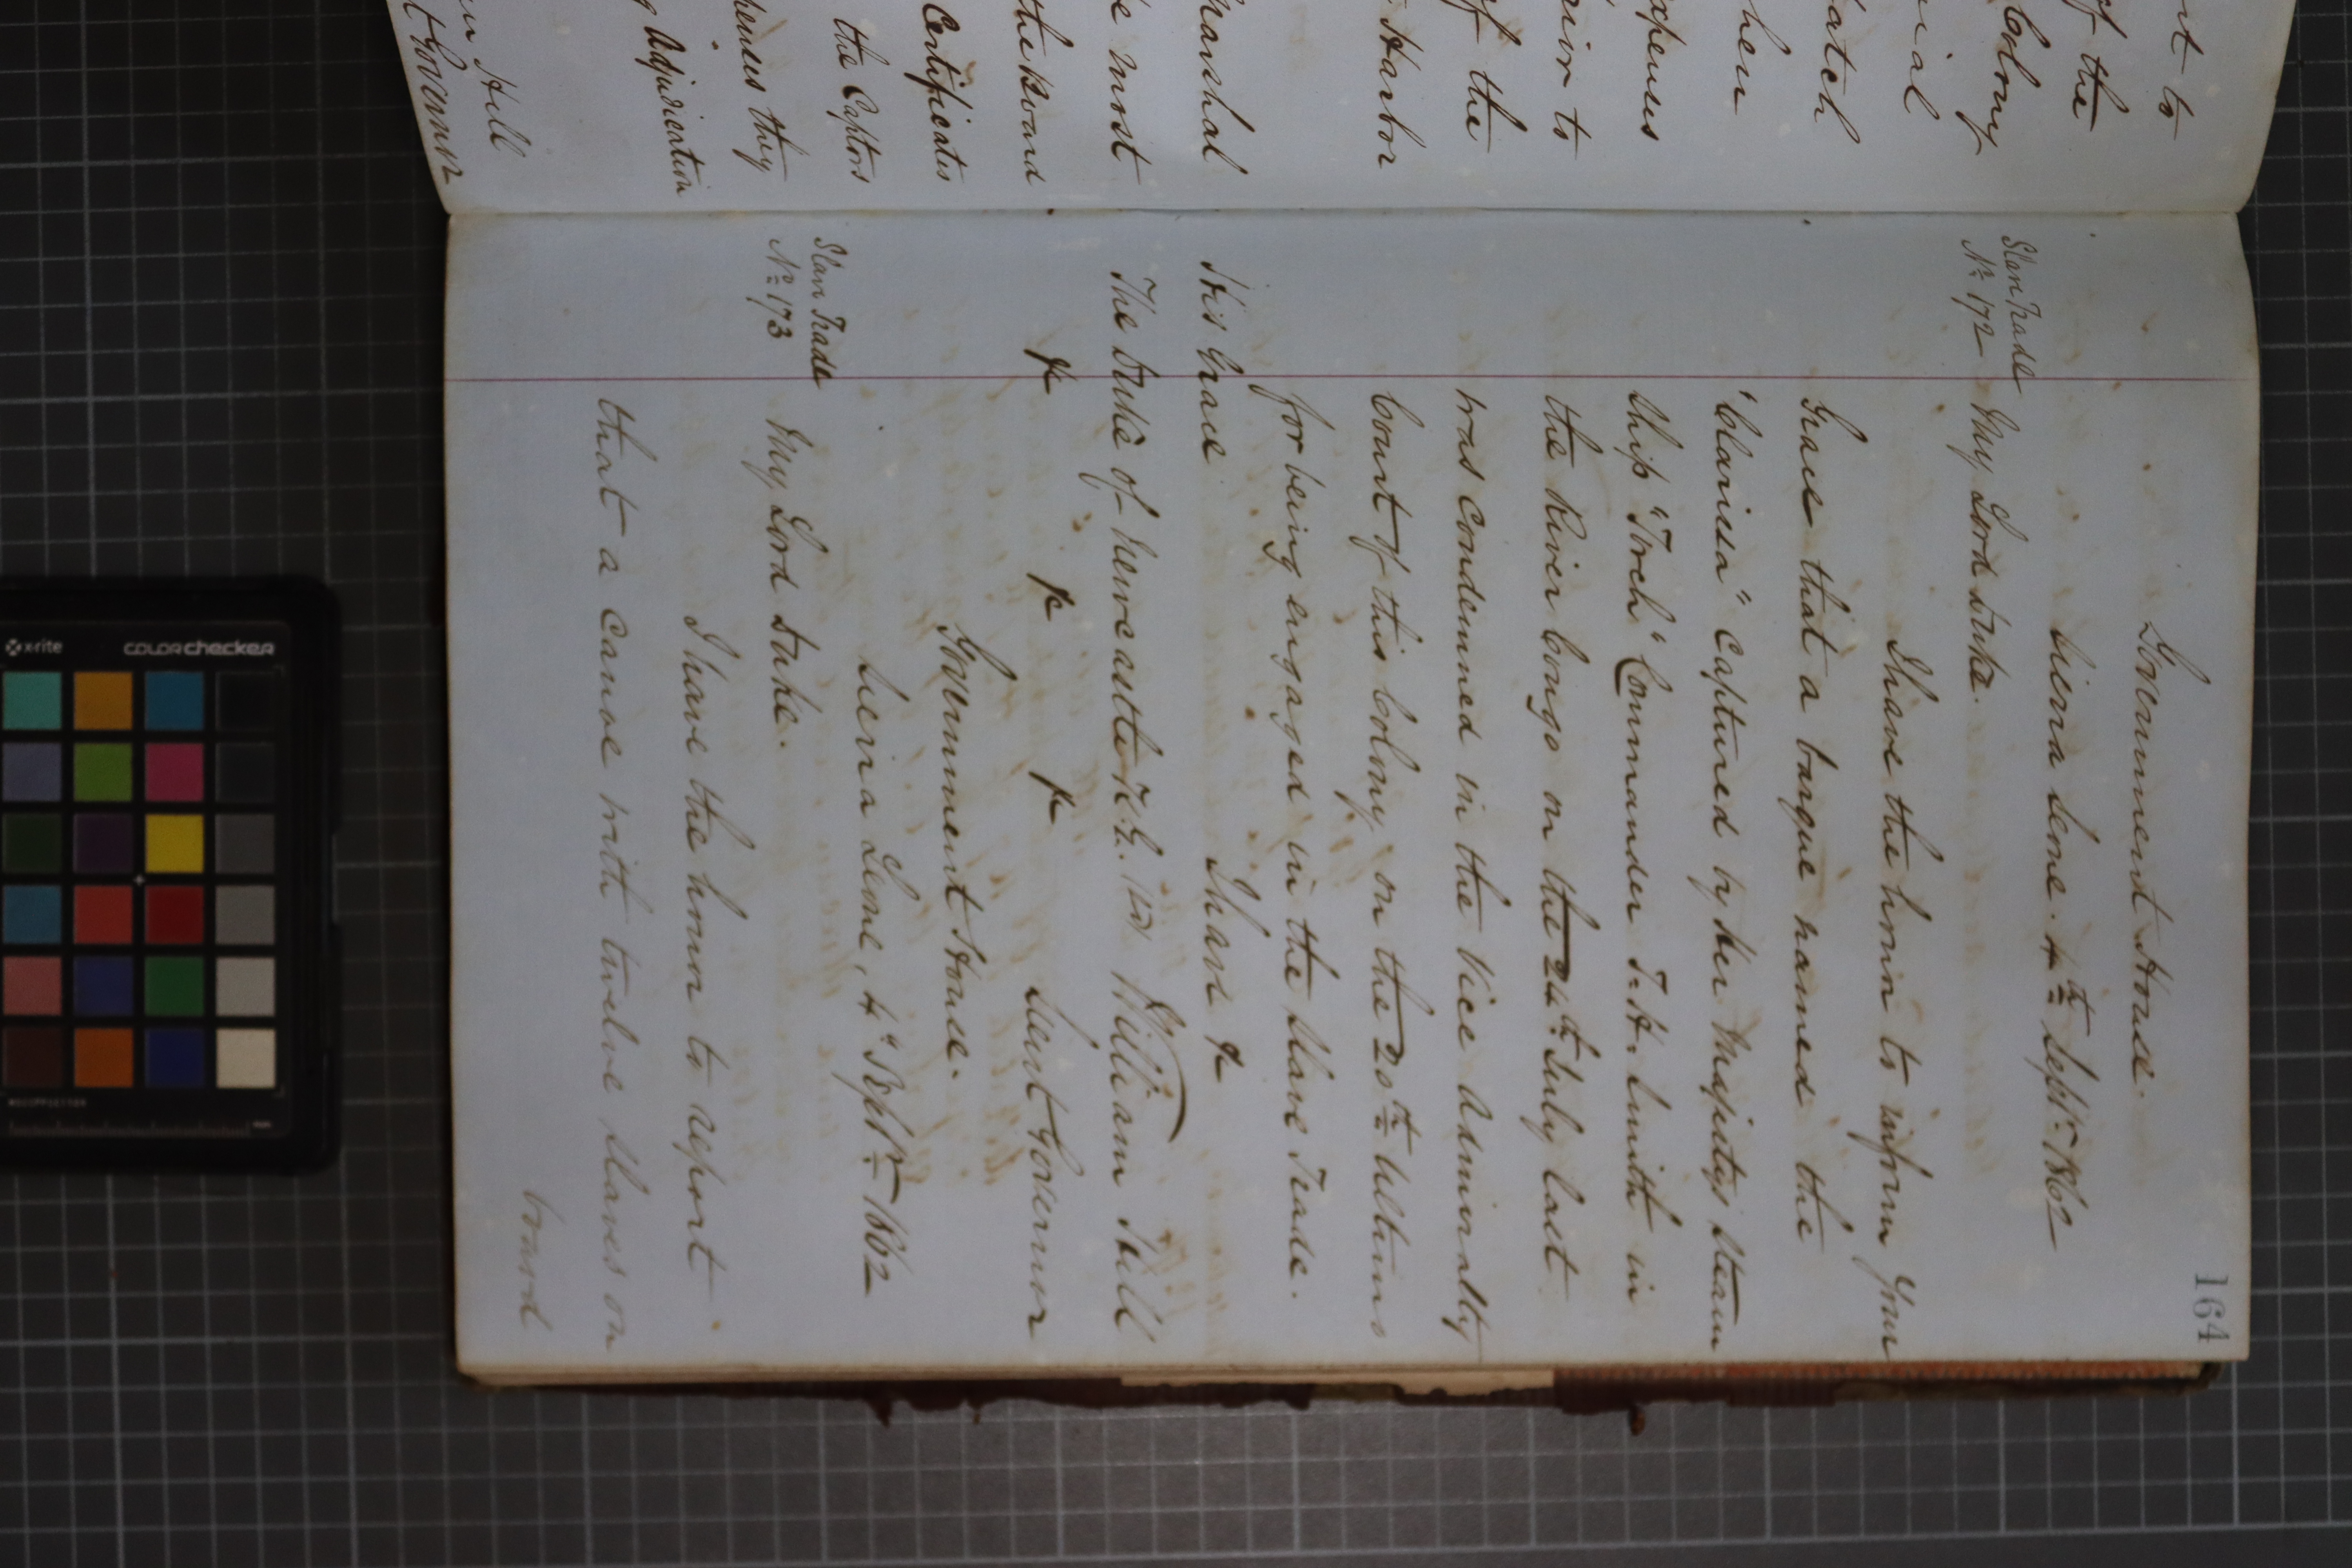 nt to
of the
Colony
rial
atch
hen
xpenses
rior to
of the
Harbor
marshal
e most
the Board
Certificates
the Captors
penses they
g Adjudication
m Hill
t Governor
164
Government House.
Sierra Leone. 4th Septr. 1862
Slave Trade
No. 172
My Lord Duke.
I have the honor to inform Your
Grace that a barque named the
"Clarissa" captured by Her Majesty's Steam
Ship "Torch" Commander F. H. Smith in
the River Congo on the 24th July last
was condemned in the Vice Admiralty
Court of this Colony on the 20th Ultimo
for being engaged in the Slave Trade.
I have &
His Grace
The Duke of Newcastle K.G. (Sd) William Hill
& & & Lieut Governor
Government House.
Sierra Leone, 4" Septr. 1862
Slave Trade
No. 173
My Lord Duke.
I have the honor to report
that a canoe with twelve slaves on
board
x-rite
colorchecker